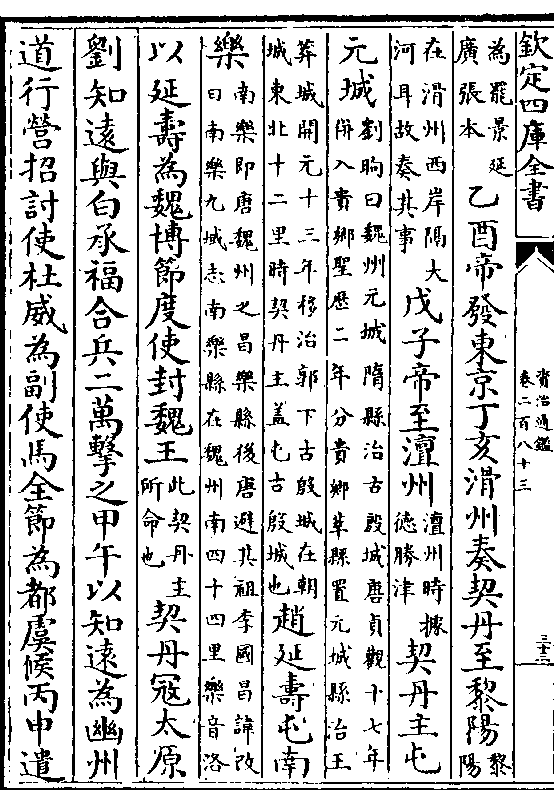 欽定四庫全書
資治通鑑
卷二百八十三
三十三
為罷景延
廣張本
乙酉帝發東京丁亥滑州奏契丹至黎陽
黎
陽
在滑州西岸隔大
河耳故奏其事
戊子帝至澶州
澶州時據
德勝津
契丹主屯
元城
劉昫曰魏州元城隋縣治古殷城唐貞觀十七年
併入貴鄉聖歷二年分貴鄉莘縣置元城縣治王
莽城開元十三年移治郭下古殷城在朝
城東北十二里時契丹主蓋屯古殷城也
趙延壽屯南
樂
南樂即唐魏州之昌樂縣後唐避其祖李國昌諱改
曰南樂九域志南樂縣在魏州南四十四里樂音洛
以延壽為魏博節度使封魏王
此契丹主
所命也
契丹寇太原
劉知遠與白承福合兵二萬擊之甲午以知遠為幽州
道行營招討使杜威為副使馬全節為都虞候丙申遣